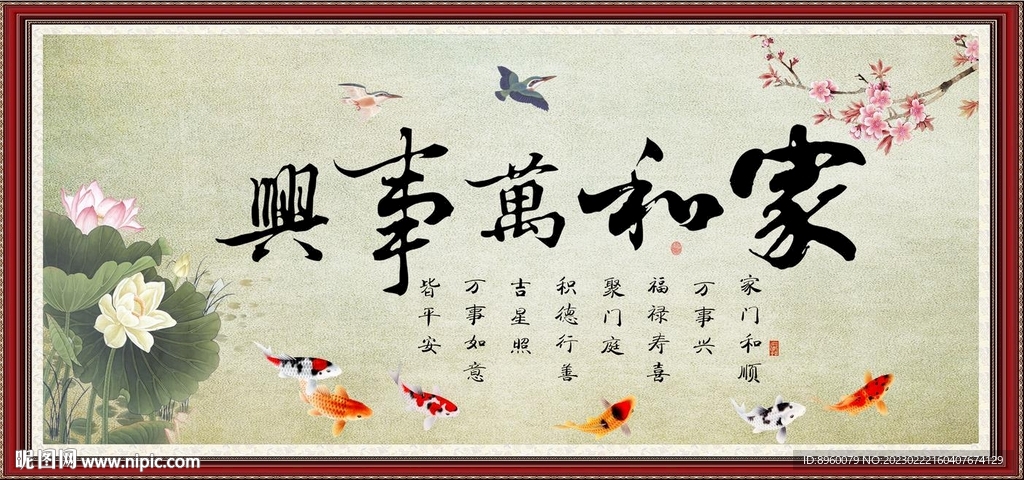 家和萬事興
家门和顺
万事兴
福禄寿喜
聚门庭
积德行善
吉星照
万事如意
皆平安
昵图网 www.nipic.com
ID:8960079 NO:20230222160407674129